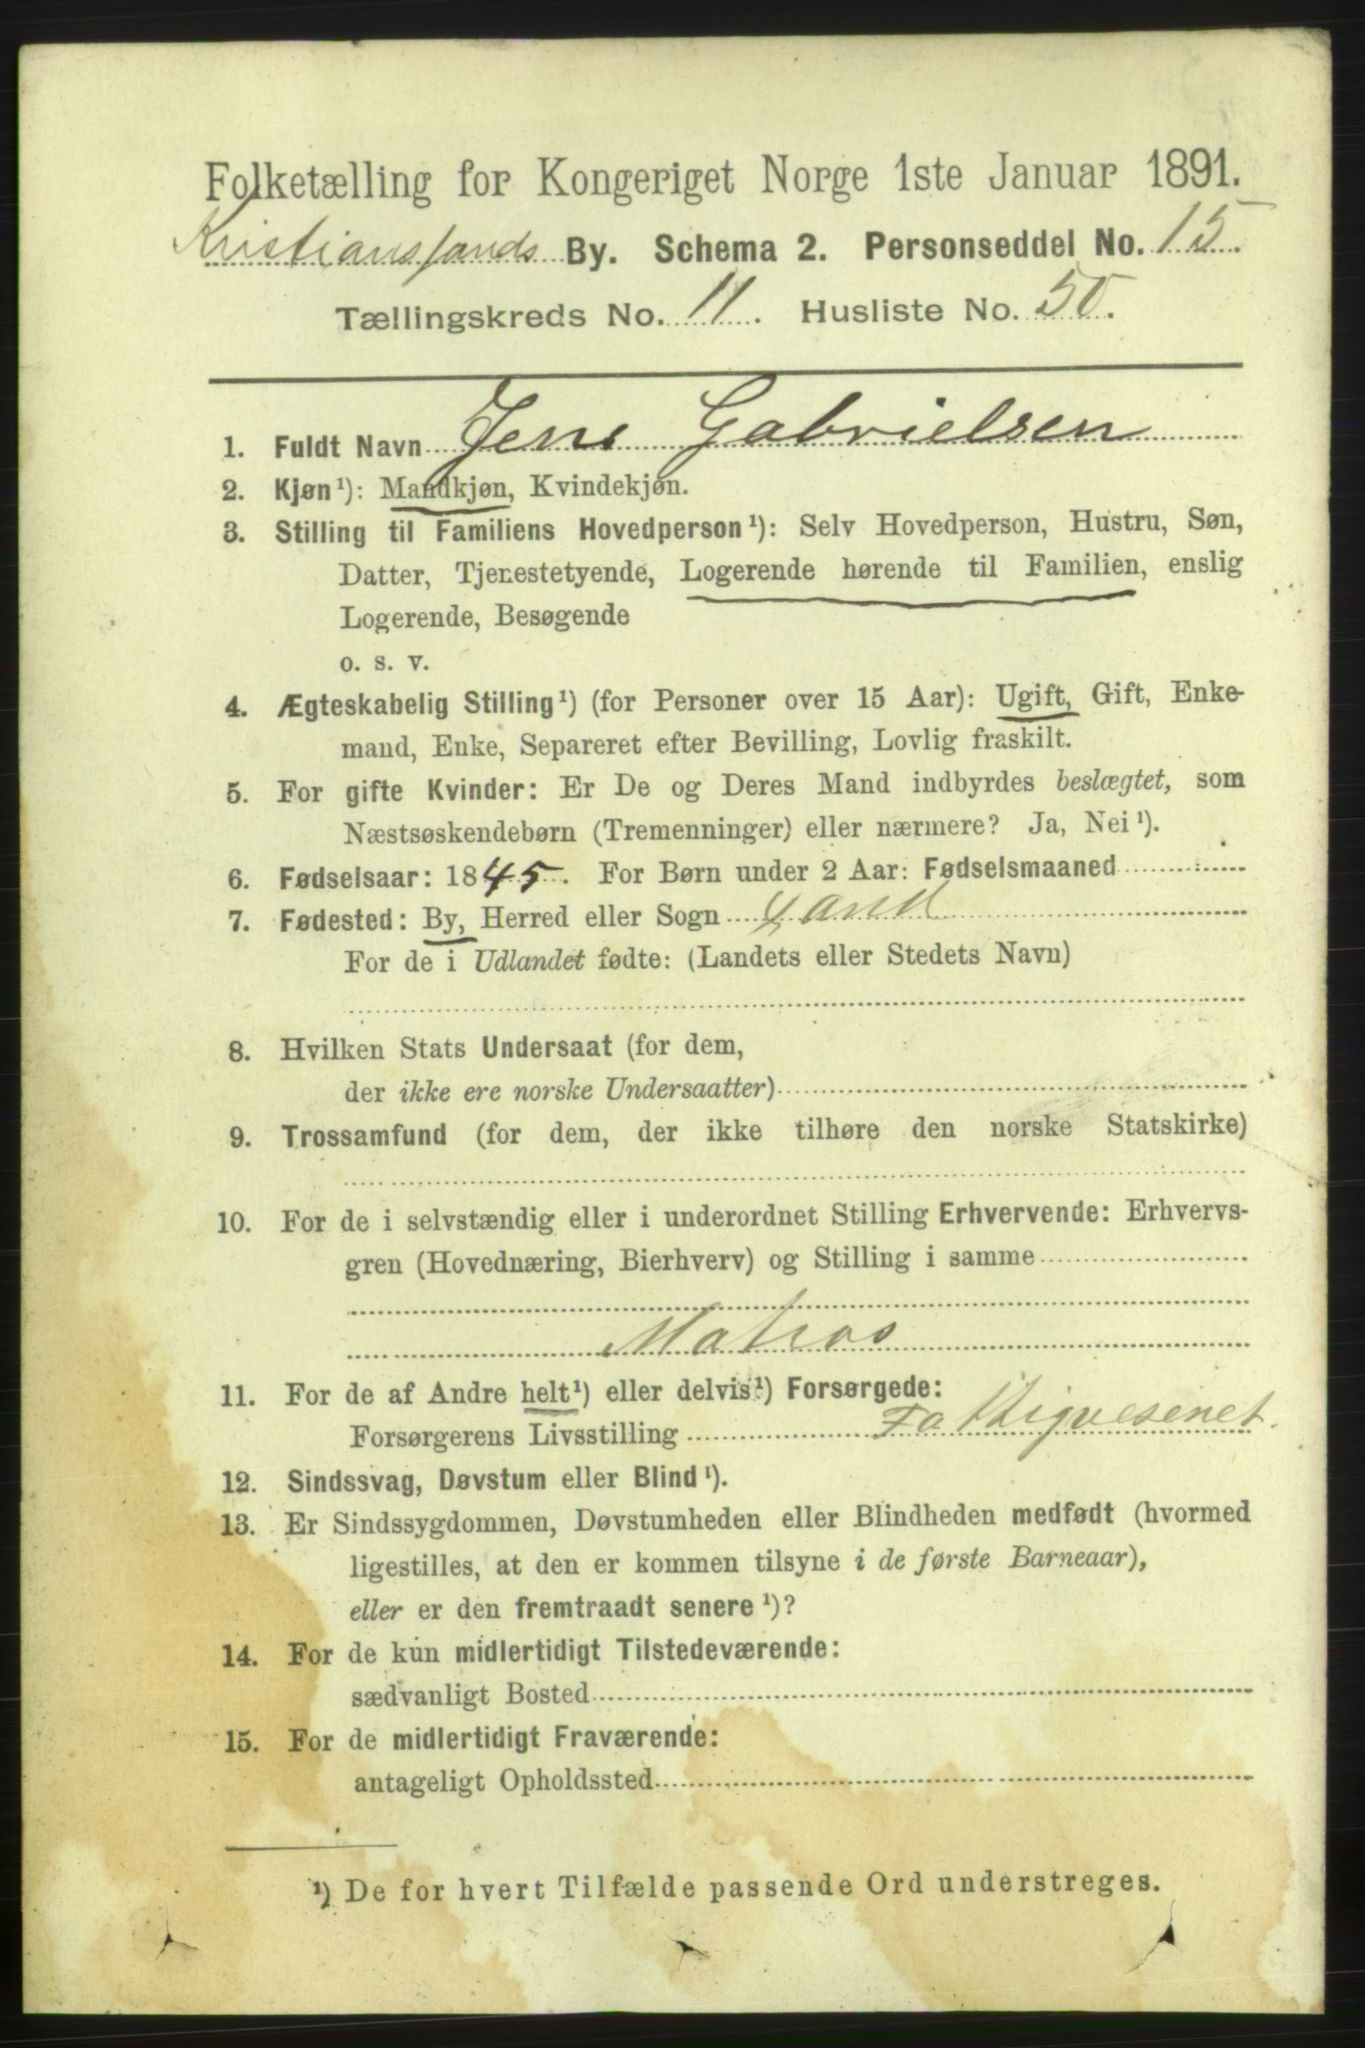 Folketælling for Kongeriget Norge 1ste Januar 1891.
Kristianssands By. Schema 2. Personseddel No. 15.
Tællingskreds No. 11. Husliste No. 50.
1. Fuldt Navn Jens Gabrielsen
2. Kjøn¹): Mandkjøn, Kvindekjøn.
3. Stilling til Familiens Hovedperson¹): Selv Hovedperson, Hustru, Søn,
Datter, Tjenestetyende, Logerende hørende til Familien, enslig
Logerende, Besøgende
o. s. v.
4. Ægteskabelig Stilling¹) (for Personer over 15 Aar): Ugift, Gift, Enke-
mand, Enke, Separeret efter Bevilling, Lovlig fraskilt.
5. For gifte Kvinder: Er De og Deres Mand indbyrdes beslægtet, som
Næstsøskendebørn (Tremenninger) eller nærmere? Ja, Nei¹).
6. Fødselsaar: 1845. For Børn under 2 Aar: Fødselsmaaned
7. Fødested: By, Herred eller Sogn
For de i Udlandet fødte: (Landets eller Stedets Navn)
8. Hvilken Stats Undersaat (for dem,
der ikke ere norske Undersaatter)
9. Trossamfund (for dem, der ikke tilhøre den norske Statskirke)
10. For de i selvstændig eller i underordnet Stilling Erhvervende: Erhvervs-
gren (Hovednæring, Bierhverv) og Stilling i samme
Matros
11. For de af Andre helt¹) eller delvis¹) Forsørgede:
Forsørgerens Livsstilling Fattigvesenet.
12. Sindssvag, Døvstum eller Blind¹).
13. Er Sindssygdommen, Døvstumheden eller Blindheden medfødt (hvormed
ligestilles, at den er kommen tilsyne i de første Barneaar),
eller er den fremtraadt senere¹)?
14. For de kun midlertidigt Tilstedeværende:
sædvanligt Bosted
15. For de midlertidigt Fraværende:
antageligt Opholdssted
¹) De for hvert Tilfælde passende Ord understreges.